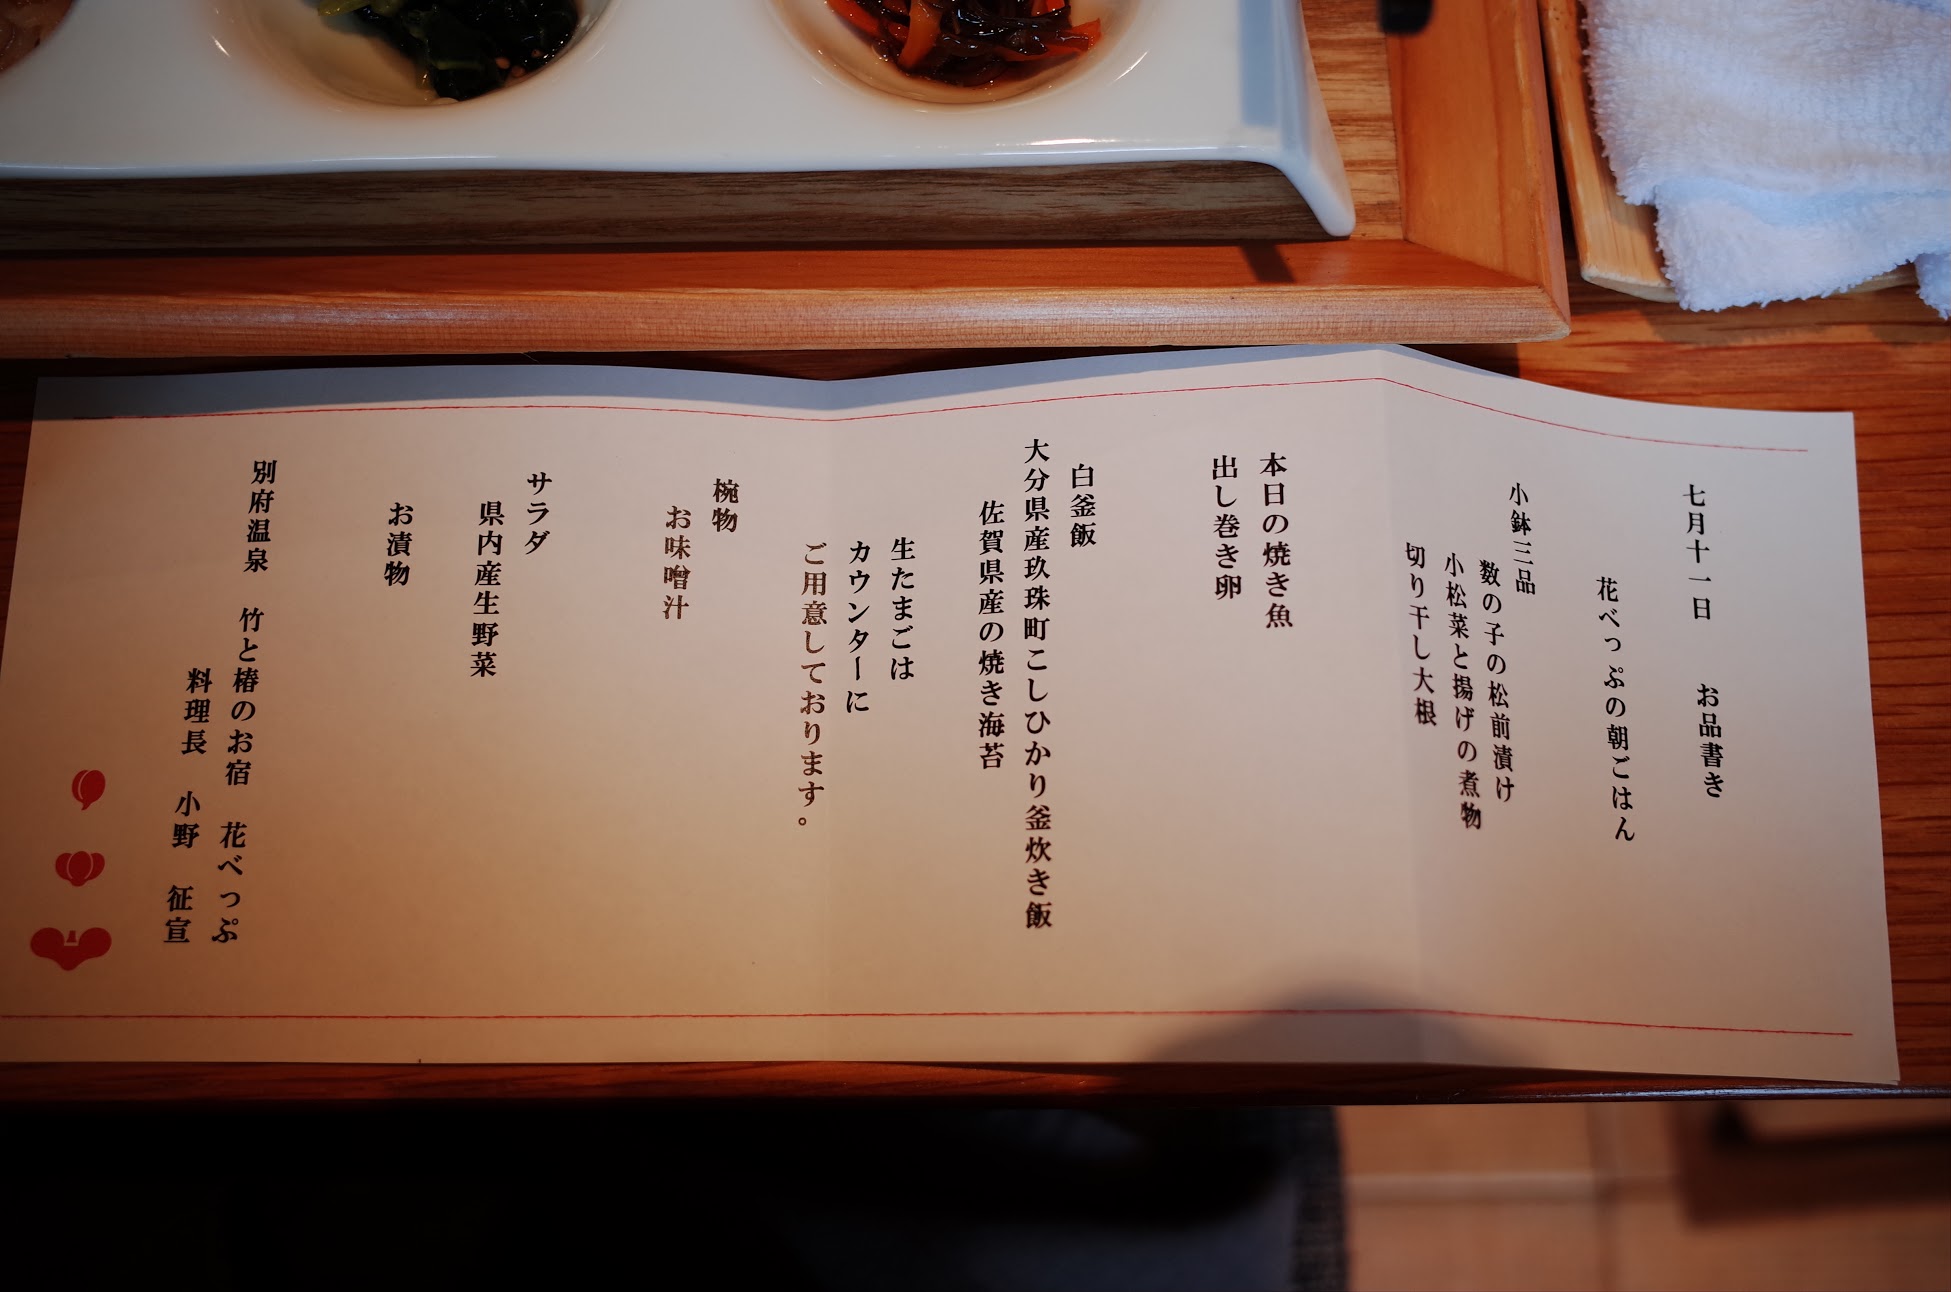 七月十一日　お品書き
花べっぷの朝ごはん
小鉢三品
数の子の松前漬け
小松菜と揚げの煮物
切り干し大根
本日の焼き魚
出し巻き卵
白釜飯
大分県産玖珠町こしひかり釜炊き飯
佐賀県産の焼き海苔
生たまごは
カウンターに
ご用意しております。
椀物
お味噌汁
サラダ
県内産生野菜
お漬物
別府温泉　竹と椿のお宿　花べっぷ
料理長　小野　征宣